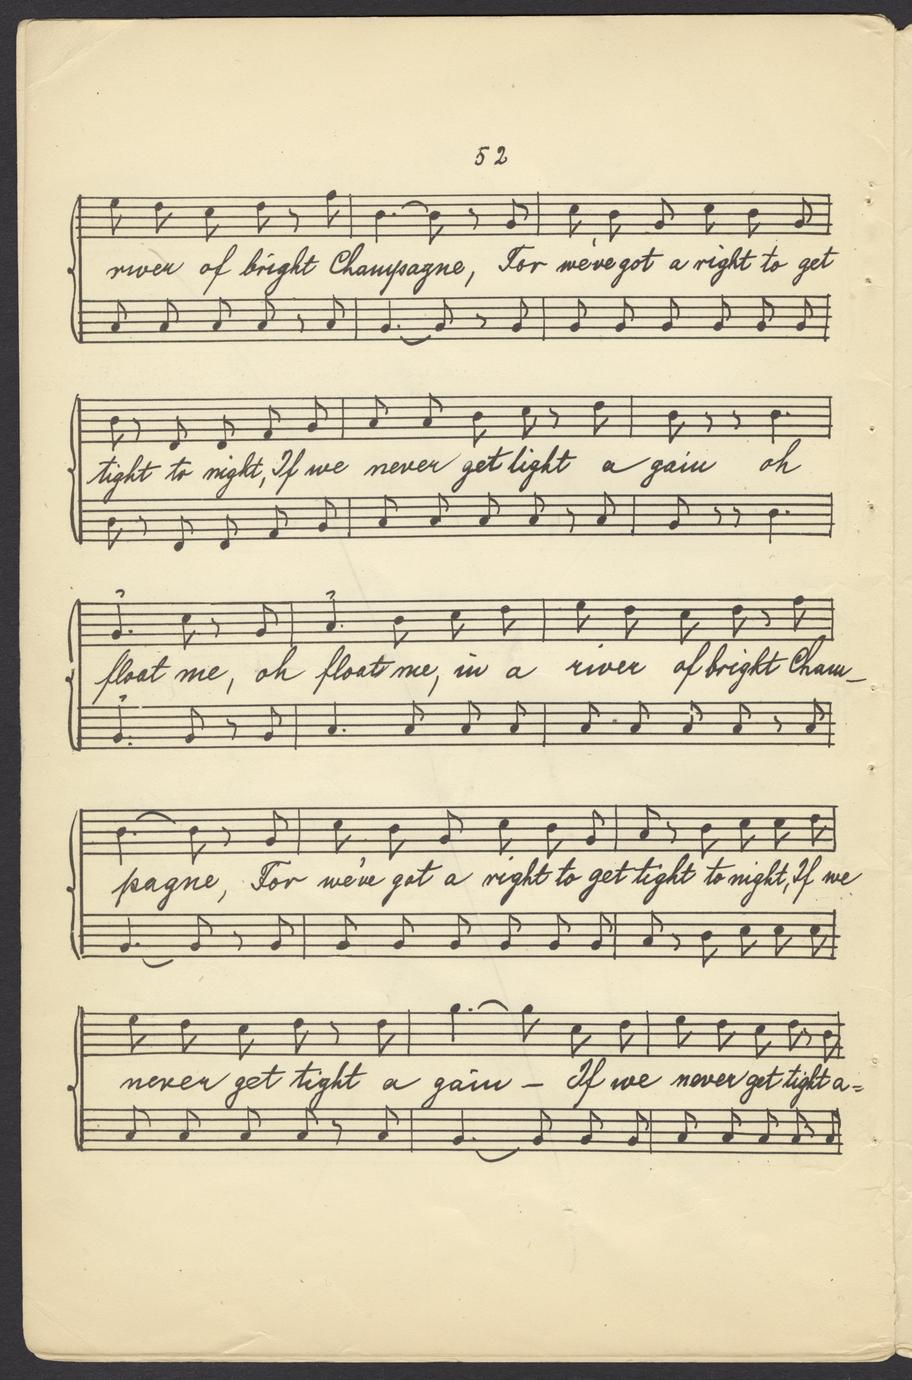 52
river of bright Champagne, For we've got a right to get
tight to night, If we never get tight a gain oh
float me, oh float me, in a river of bright Cham_
pagne, For we've got a right to get tight to night, If we
never get tight a gain – If we never get tight a=